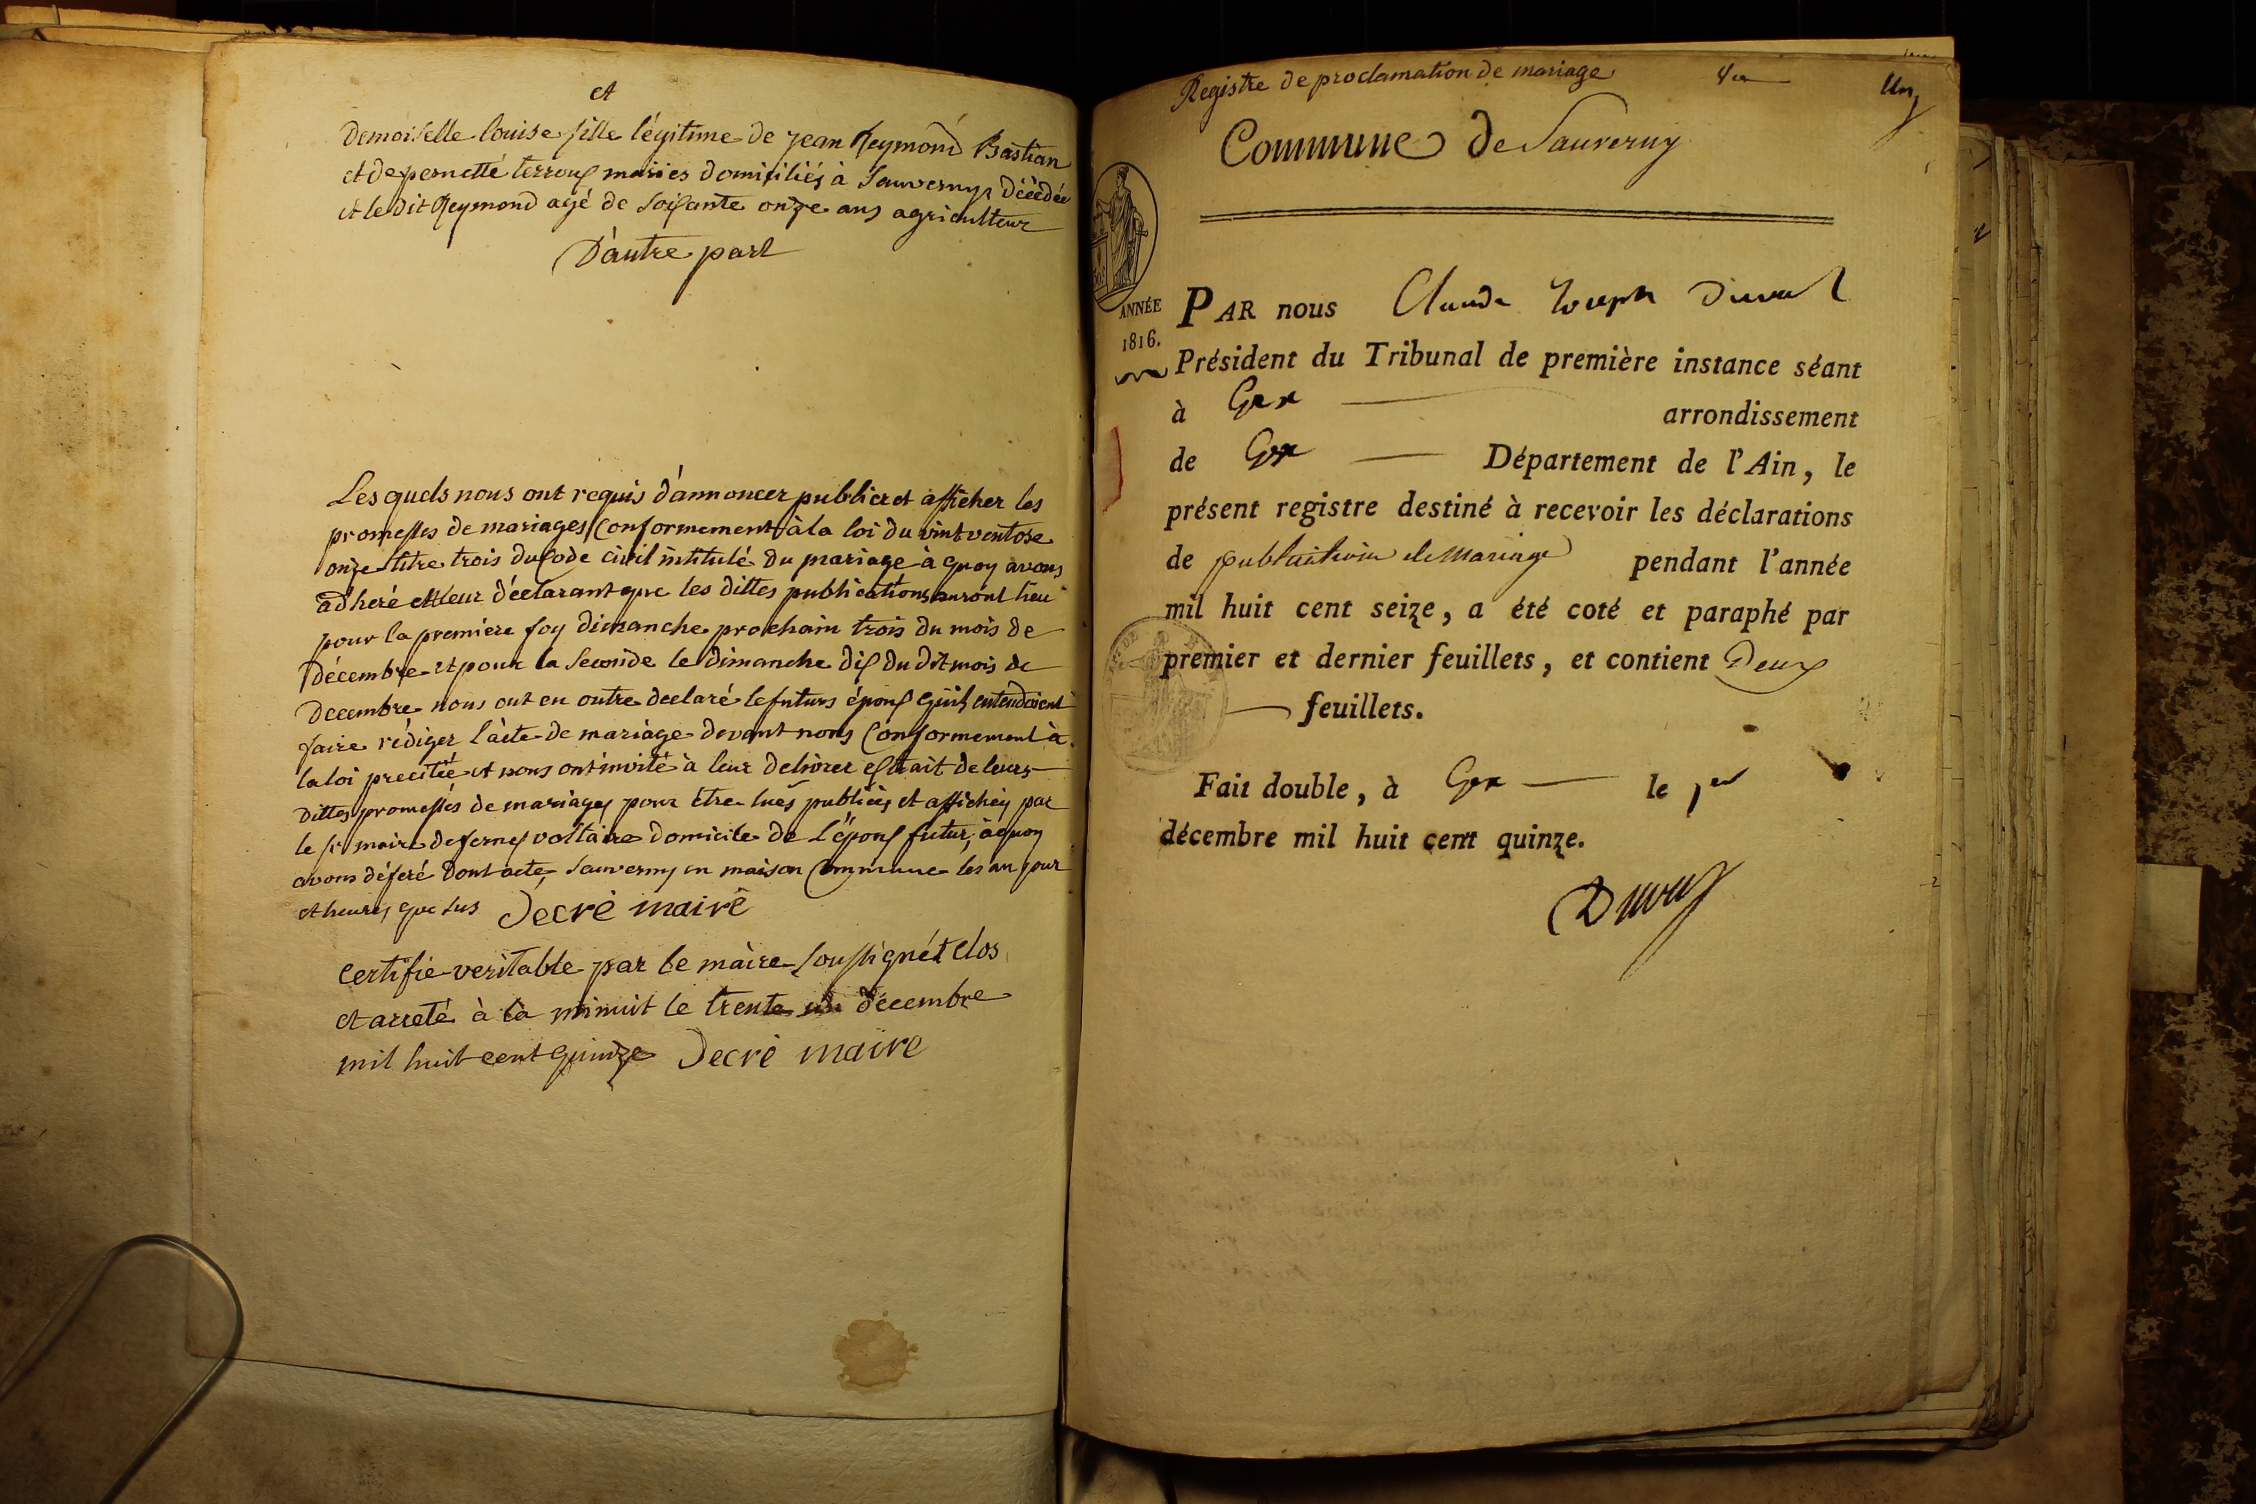 et
Demoiselle louise fille légitime de jean Reymond Bastian
et de pernette terroux mariés domiciliés à Sauverny, décédée
et le dit Reymond agé de soixante onze ans agriculteur
D'autre part
Les quels nous ont requis d'annoncer publier et afficher les
promesses de mariages Conformement à la loi du vint ventose
onze titre trois du Code civil intitulé du mariage à quoy avons
adheré en leur déclarant que les dittes publications auront lieu
pour la premiere foy dimanche prochain trois du mois de
décembre et pour la seconde le dimanche dix du dit mois de
decembre nous ont en outre declaré le futurs époux qu'ils entendoient
faire rédiger l'àcte de mariàge devant nous Conformement à
la loi precitée et nous ont invité à leur delivrer extrait de leurs
dittes promesses de mariages pour être lues publiés et affichés par
le sr maire de ferney voltaire domicile de l'époux futur, à quoy
avons déferé Dont acte, Sauverny en maison Commune les an jour
et heures que sus Decré maire
Certifié veritable par le màire soussigné et Clos
et arreté à la minuit le trente un décembre
mil huit cent quinze Decré maire
Registre de proclamation de mariage
Un
Commune de Sauverny
ANNÉE
1816.
PAR nous Claude Joseph Duval
Président du Tribunal de première instance séant
à Gex arrondissement
de Gex Département de l'Ain, le
présent registre destiné à recevoir les déclarations
de publication de Mariage pendant l'année
mil huit cent seize, a été coté et paraphé par
premier et dernier feuillets, et contient Deux
feuillets.
Fait double, à Gex le 1er
décembre mil huit cent quinze.
Duval